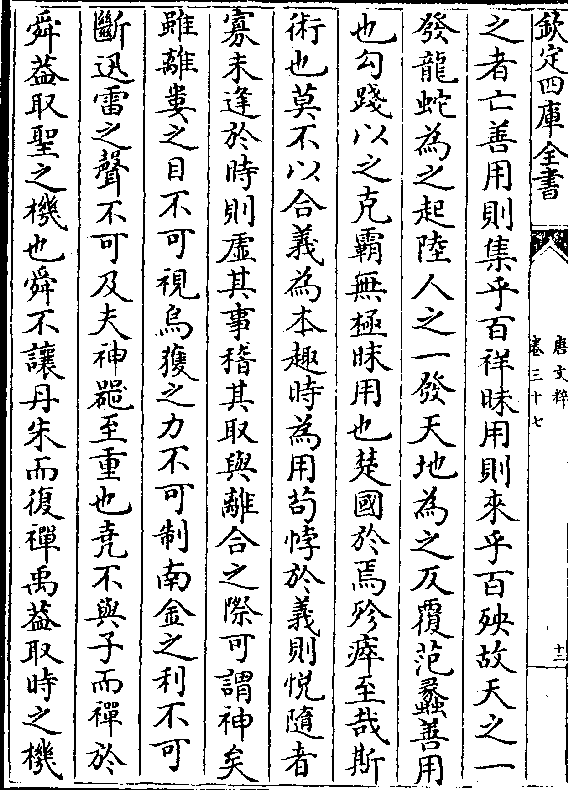 欽定四庫全書
唐文粹
卷三十七
十二
之者亡善用則集乎百祥昧用則來乎百殃故天之一
發龍蛇為之起陸人之一發天地為之反覆范蠡善用
也勾踐以之克霸無極昧用也楚國於焉殄瘁至哉斯
術也莫不以合義為本趣時為用茍悖於義則悅隨者
寡未逢於時則虛其事稽其取與離合之際可謂神矣
雖離婁之目不可視烏獲之力不可制南金之利不可
斷迅雷之聲不可及夫神噐至重也堯不與子而禪於
舜葢取聖之機也舜不讓丹朱而復禪禹葢取時之機